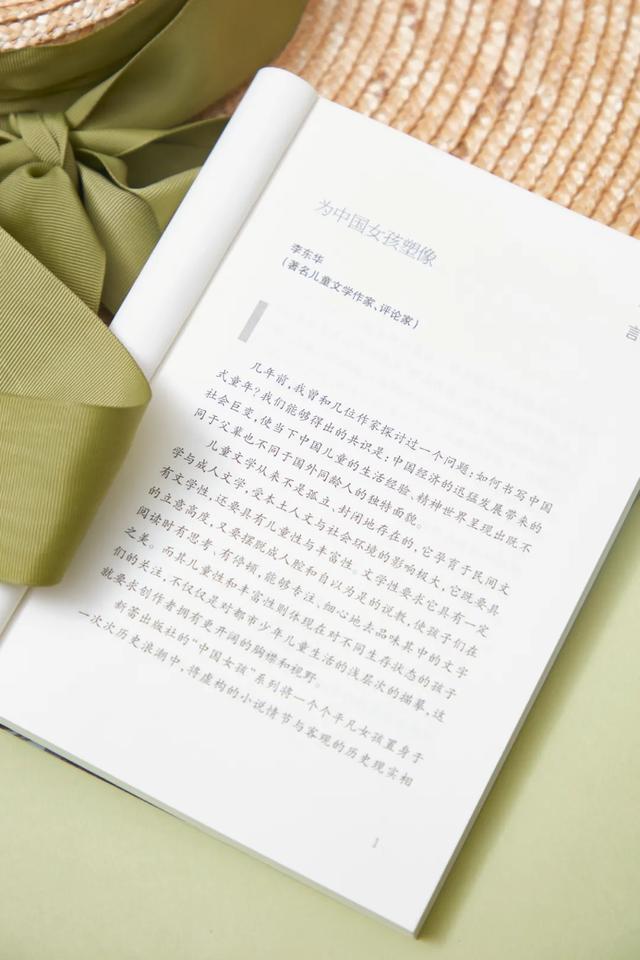 为中国女孩塑像
李东华
(著名儿童文学作家、评论家)
言
几年前,我曾和几位作家探讨过一个问题:如何书写中国
式童年?我们能够得出的共识是:中国经济的迅猛发展带来的
社会巨变,使当下中国儿童的生活经验、精神世界呈现出既不
同于父辈也不同于国外同龄人的独特面貌。
儿童文学从来不是孤立、封闭地存在的,它孕育于民间文
学与成人文学,受本土人文与社会环境的影响极大,它既要具
有文学性,还要具有儿童性与丰富性。文学性要求它具有一定
的立意高度,又要摆脱成人腔和自以为是的说教,使孩子们在
阅读时有思考、有停顿,能够专注、细心地去品味其中的文字
之美。而其儿童性和丰富性则体现在对不同生存状态的孩子
们的关注,不仅仅是对都市少年儿童生活的浅层次的描摹,这
就要求创作者拥有更开阔的胸襟和视野。
新蕾出版社的“中国女孩”系列将一个个平凡女孩置身于
一次次历史浪潮中,将虚构的小说情节与客观的历史现实相
1